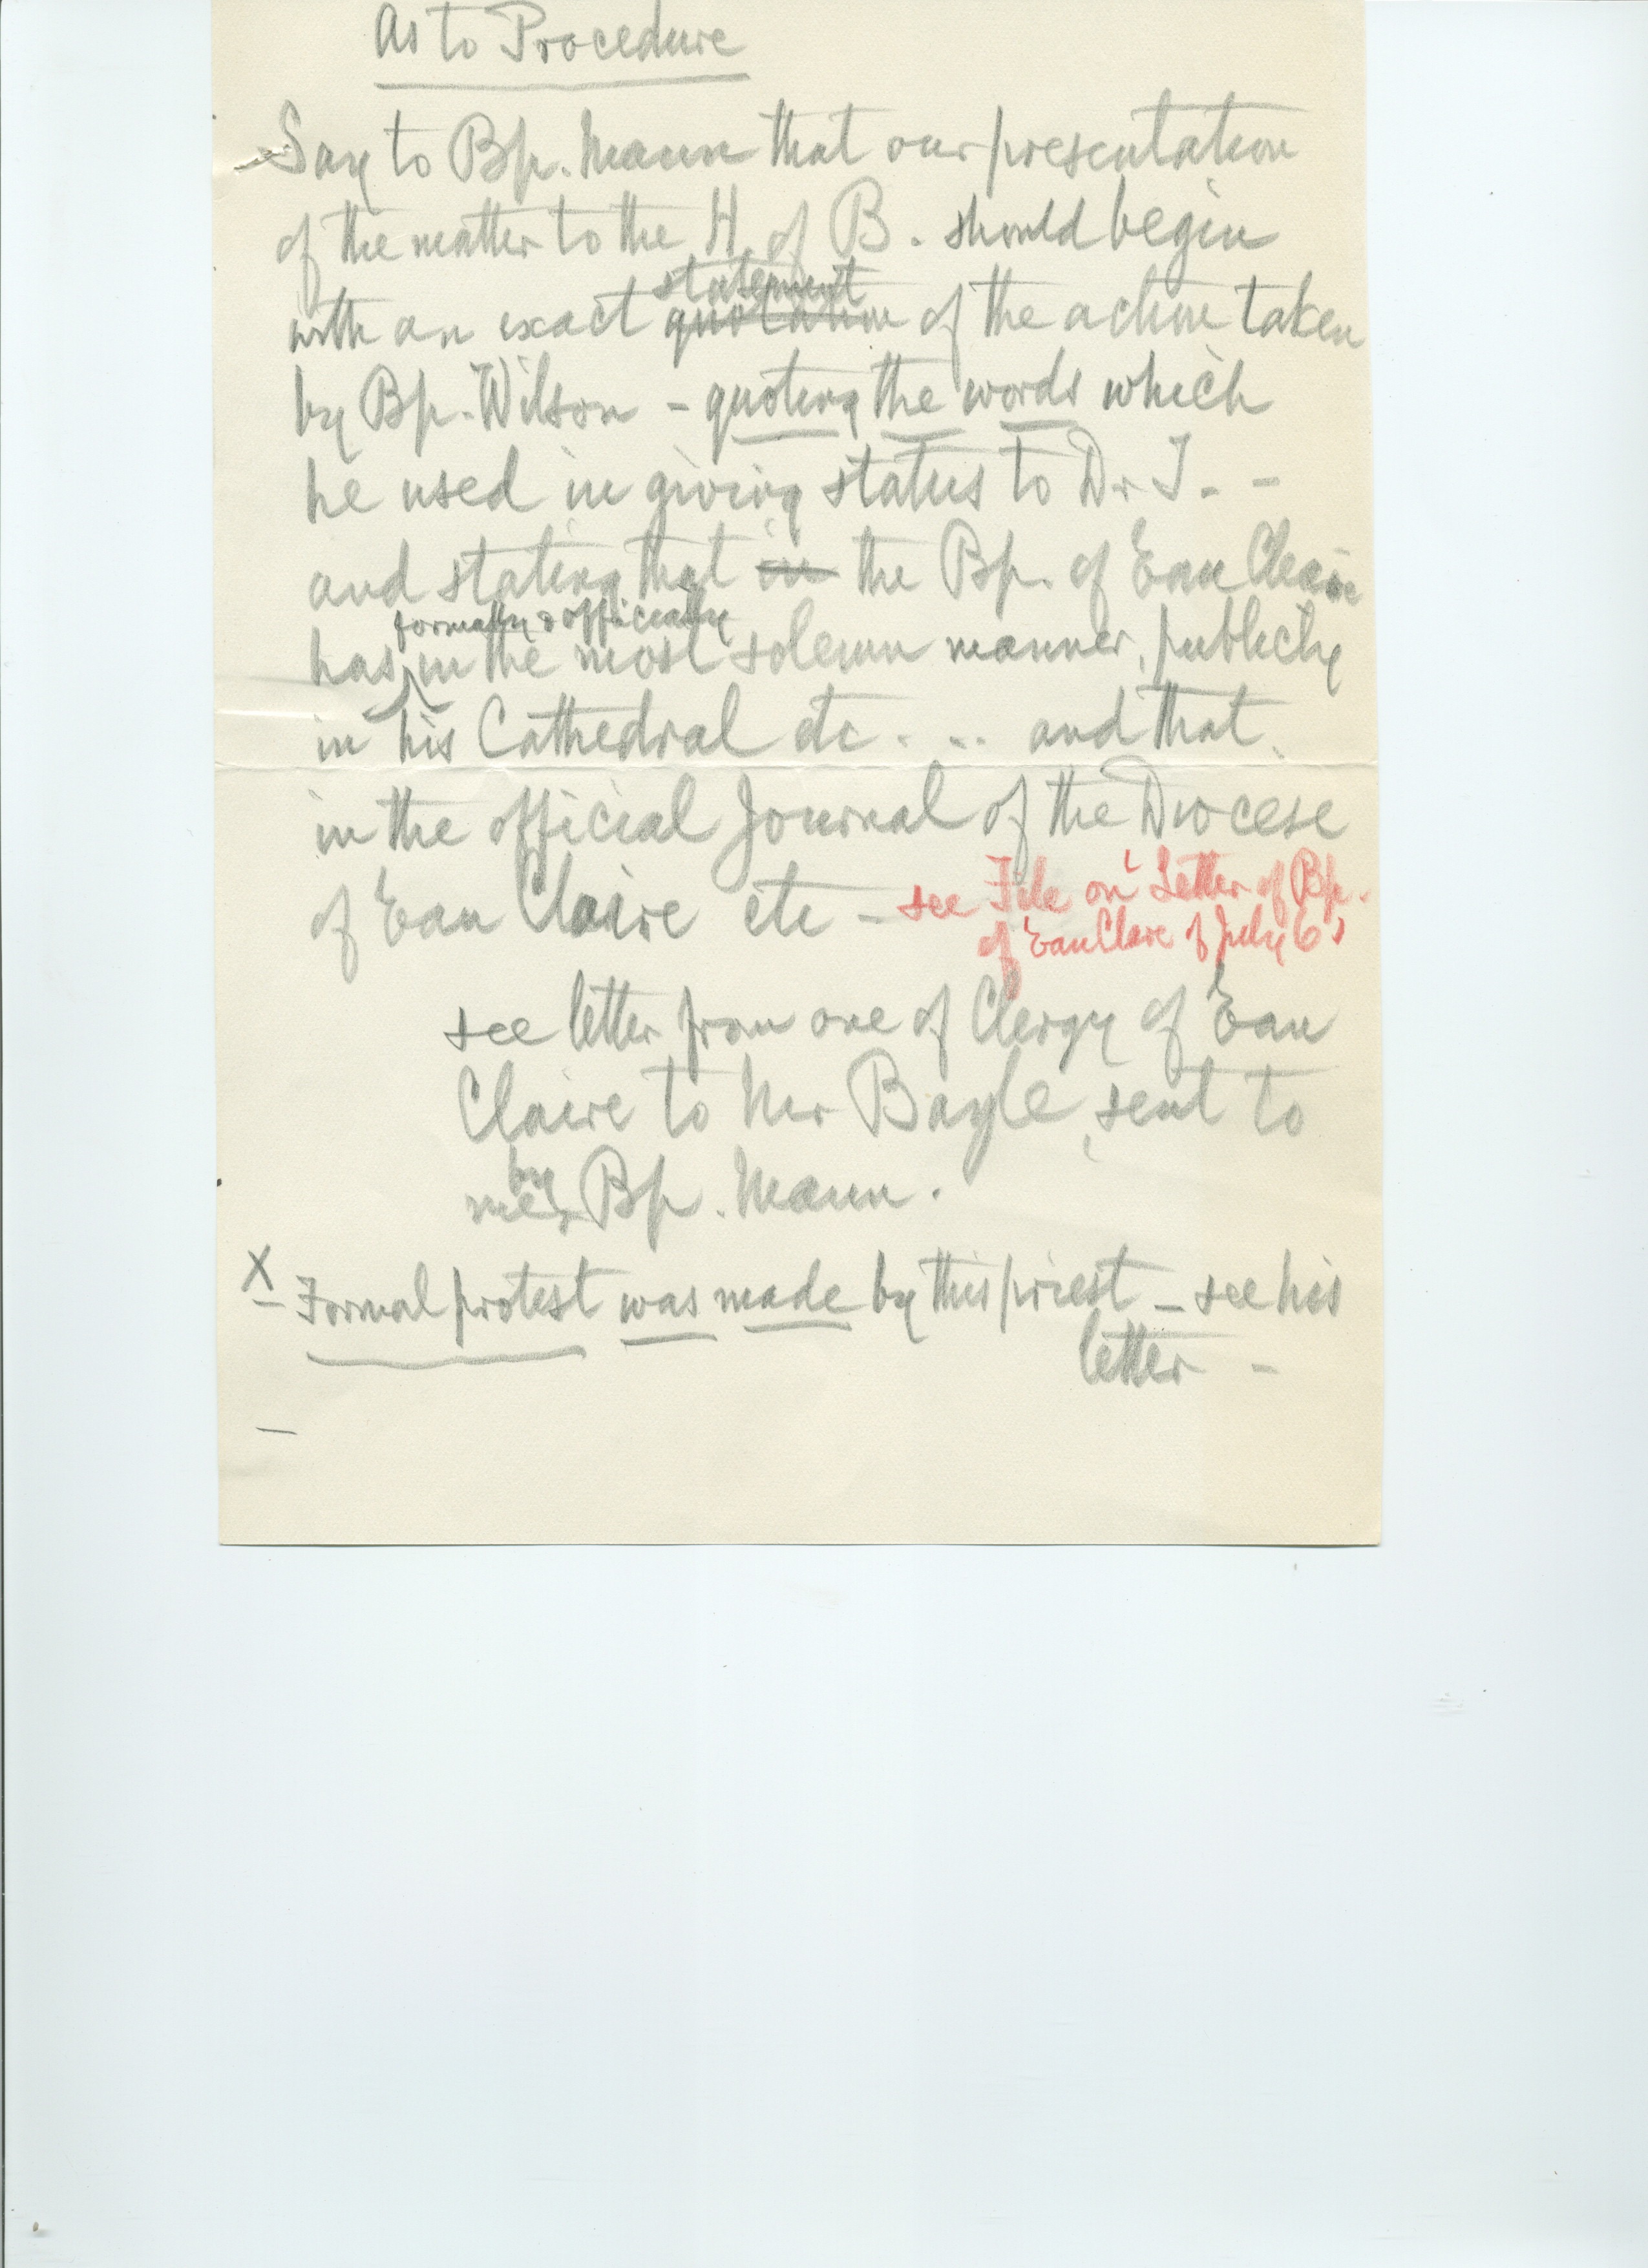 As to Procedure
Say to Bp. Mann that our presentation
of the matter to the H. of B. should begin
statement
with an exact quotation of the action taken
by Bp. Wilson - quoting the words which
he used in giving status to Dr T. -
and stating that in the Bp. of Eau Claire
formally & officially
has in the most solemn manner, publicly
in his Cathedral etc. ... and that
in the official Journal of the Diocese
of Eau Claire etc - see File on Letter of Bp.
of Eau Claire of July 6'
see letter from one of Clergy of Eau
Claire to Mr Bayle, sent to
me by Bp. Mann.
X Formal protest was made by this priest - see his
letter -